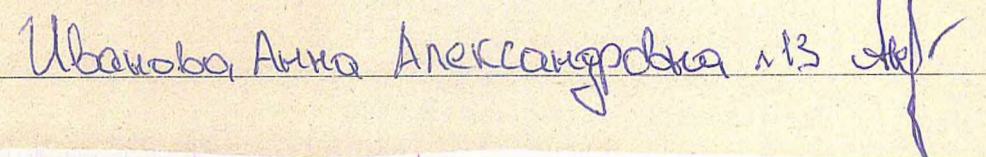 Иванова Анна Александровна